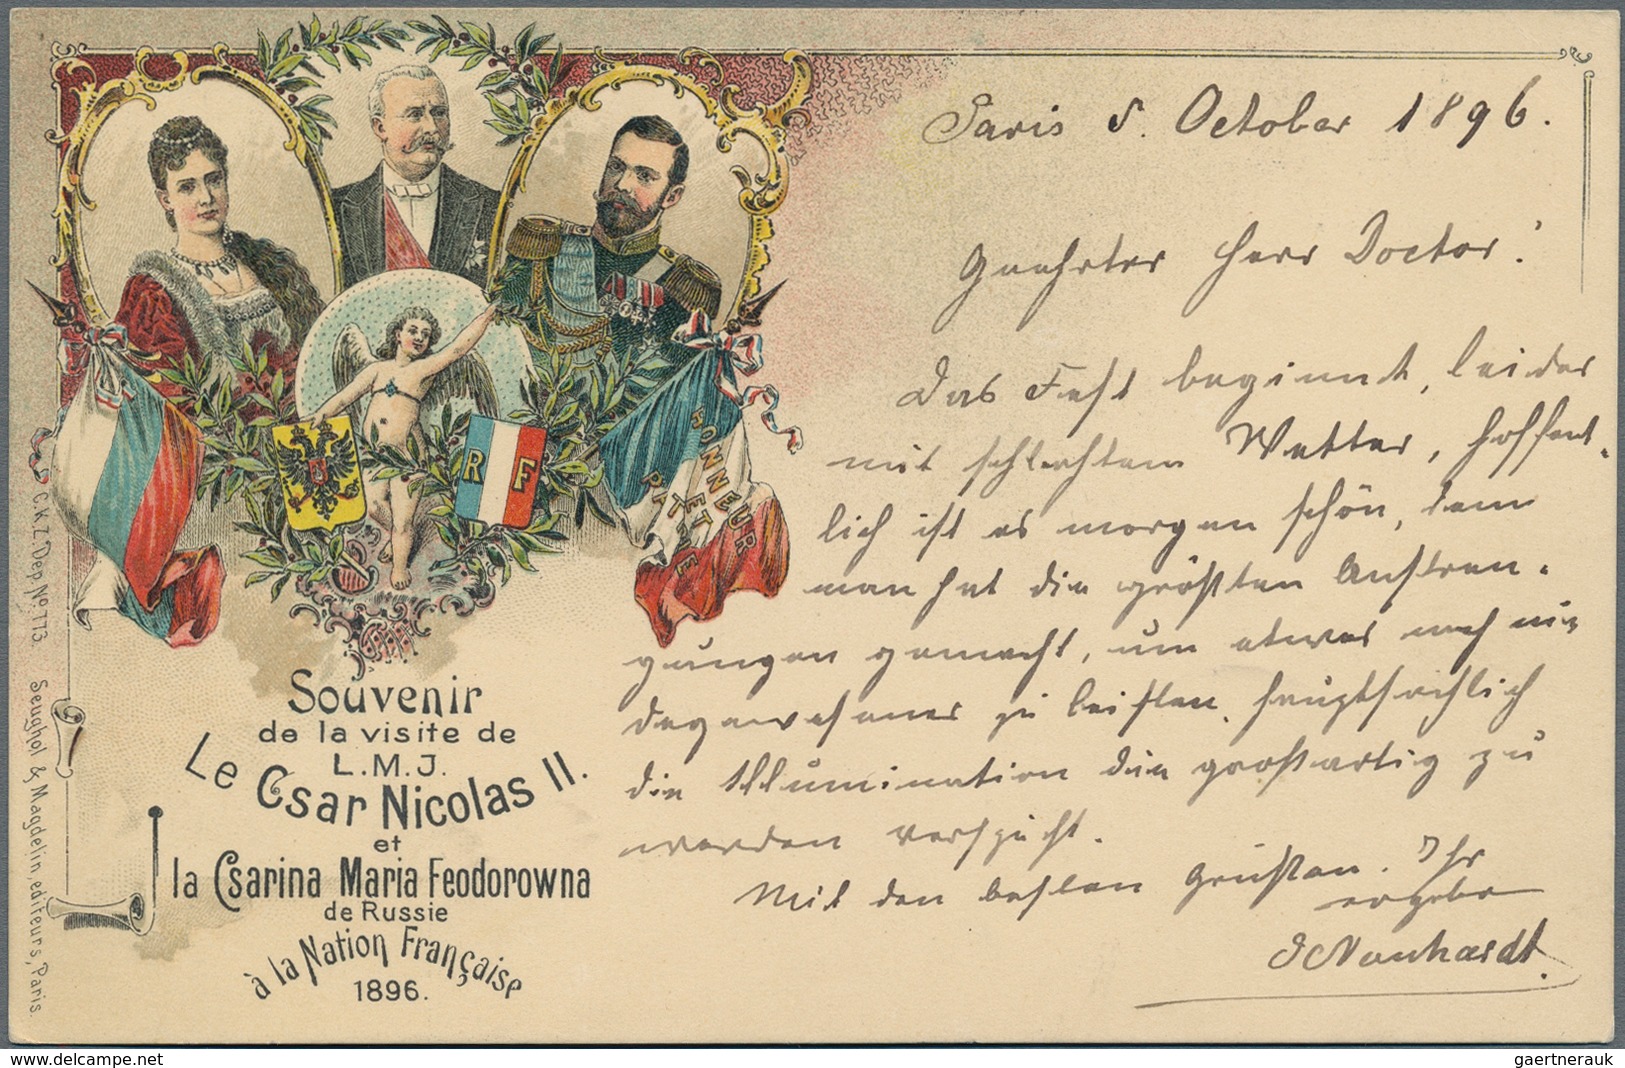 Paris 5. October 1896.
Geehrter Herr Doctor!
Das Fest beginnt, leider
mit schlechtem Wetter, hoffent-
lich ist es morgen schön, denn
man hat die größten Anstren-
gungen gemacht, um etwas noch nie
dagewesenes zu leisten, hauptsächlich
die Illumination die großartig zu
werden verspricht.
Mit den besten Grüßen. Ihr
ergebe
HONNEUR
ET
PATRIE
R F
Souvenir
de la visite de
L.M.J.
Le Csar Nicolas II.
et
la Csarina Maria Feodorowna
de Russie
à la Nation Française
1896.
C.K.Z. Dep. No. 773. Seughol & Magdelin, editeurs, Paris.
gaertnerauk